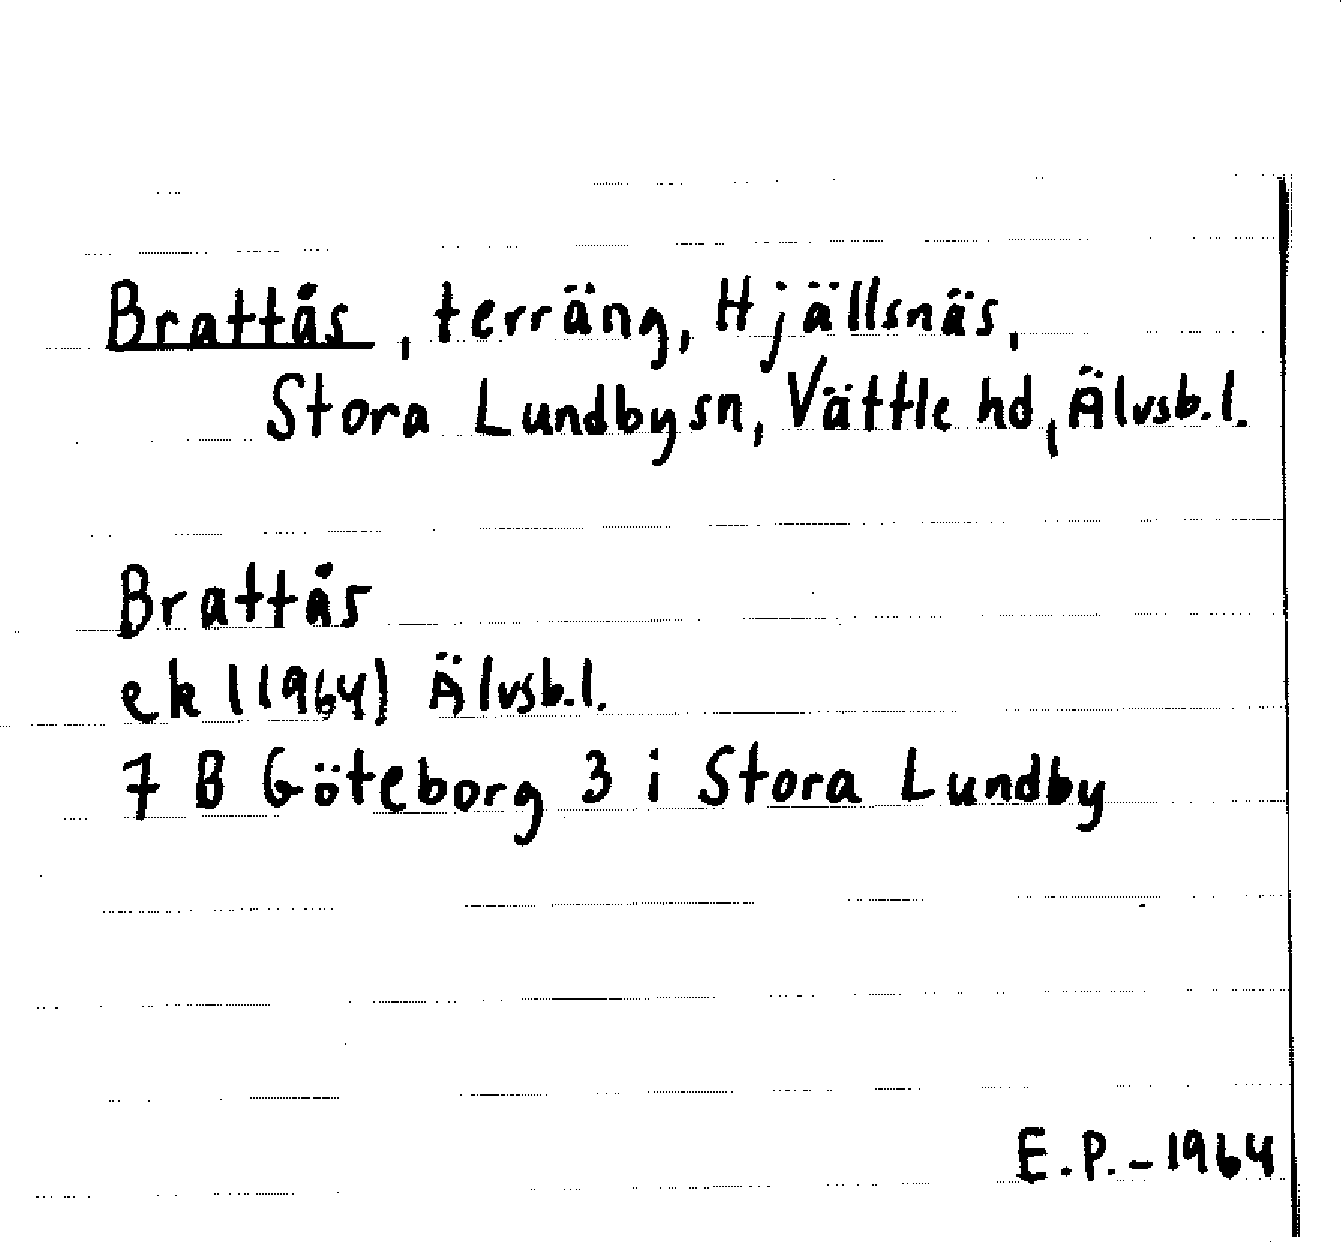 Brattås, terräng, Hjällsnäs,
Stora Lundby sn, Vättle hd, Älvsb.l.
Brattås
ek l (1964) Älvsb.l.
7 B Göteborg 3 i Stora Lundby
E.P. - 1964